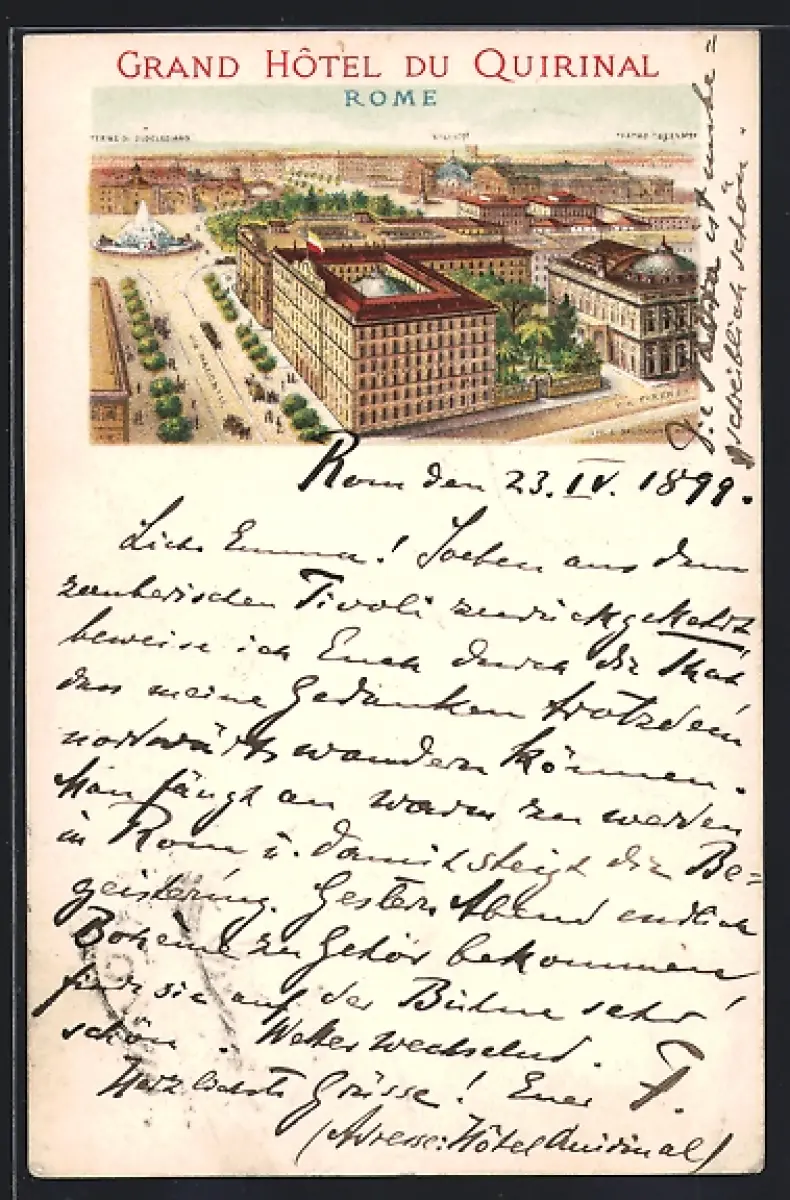 GRAND HÔTEL DU QUIRINAL
ROME
TERME DI DIOCLEZIANO
VIA NAZIONALE
VIA FIRENZE
Rom den 23. IV. 1899.
Liebe Emma! Soeben aus dem
zauberischen Tivoli zurückgekehrt
beweise ich Euch durch die That
dass meine Gedanken trotzdem
nordwärts wandern können.
Man fängt an warm zu werden
in Rom u. damit steigt die Be=
geisterung. Gestern Abend endlich
Boheme zu Gehör bekommen,
finde sie auf der Bühne sehr
schön. Wetter wechselnd.
Herzlichste Grüsse! Euer F.
(Adresse: Hôtel Quirinal)
Die ist unbe"
schreiblich schön.